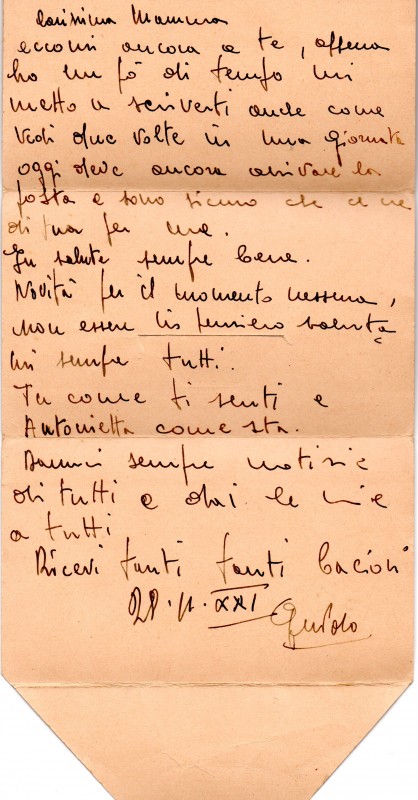 Carissima Mamma
eccomi ancora a te, appena
ho un pò di tempo mi
metto a scriverti anche come
vedi due volte in una giornata
oggi deve ancora arrivare la
posta e sono sicuro che ce ne
di tua per me.
In salute sempre bene.
Novità per il momento nessuna,
non essere in pensiero saluta
mi sempre tutti.
Tu come ti senti e
Antonietta come sta.
Dammi sempre notizie
di tutti e dai le mie
a tutti
Ricevi tanti tanti bacioni
XXI
Guido